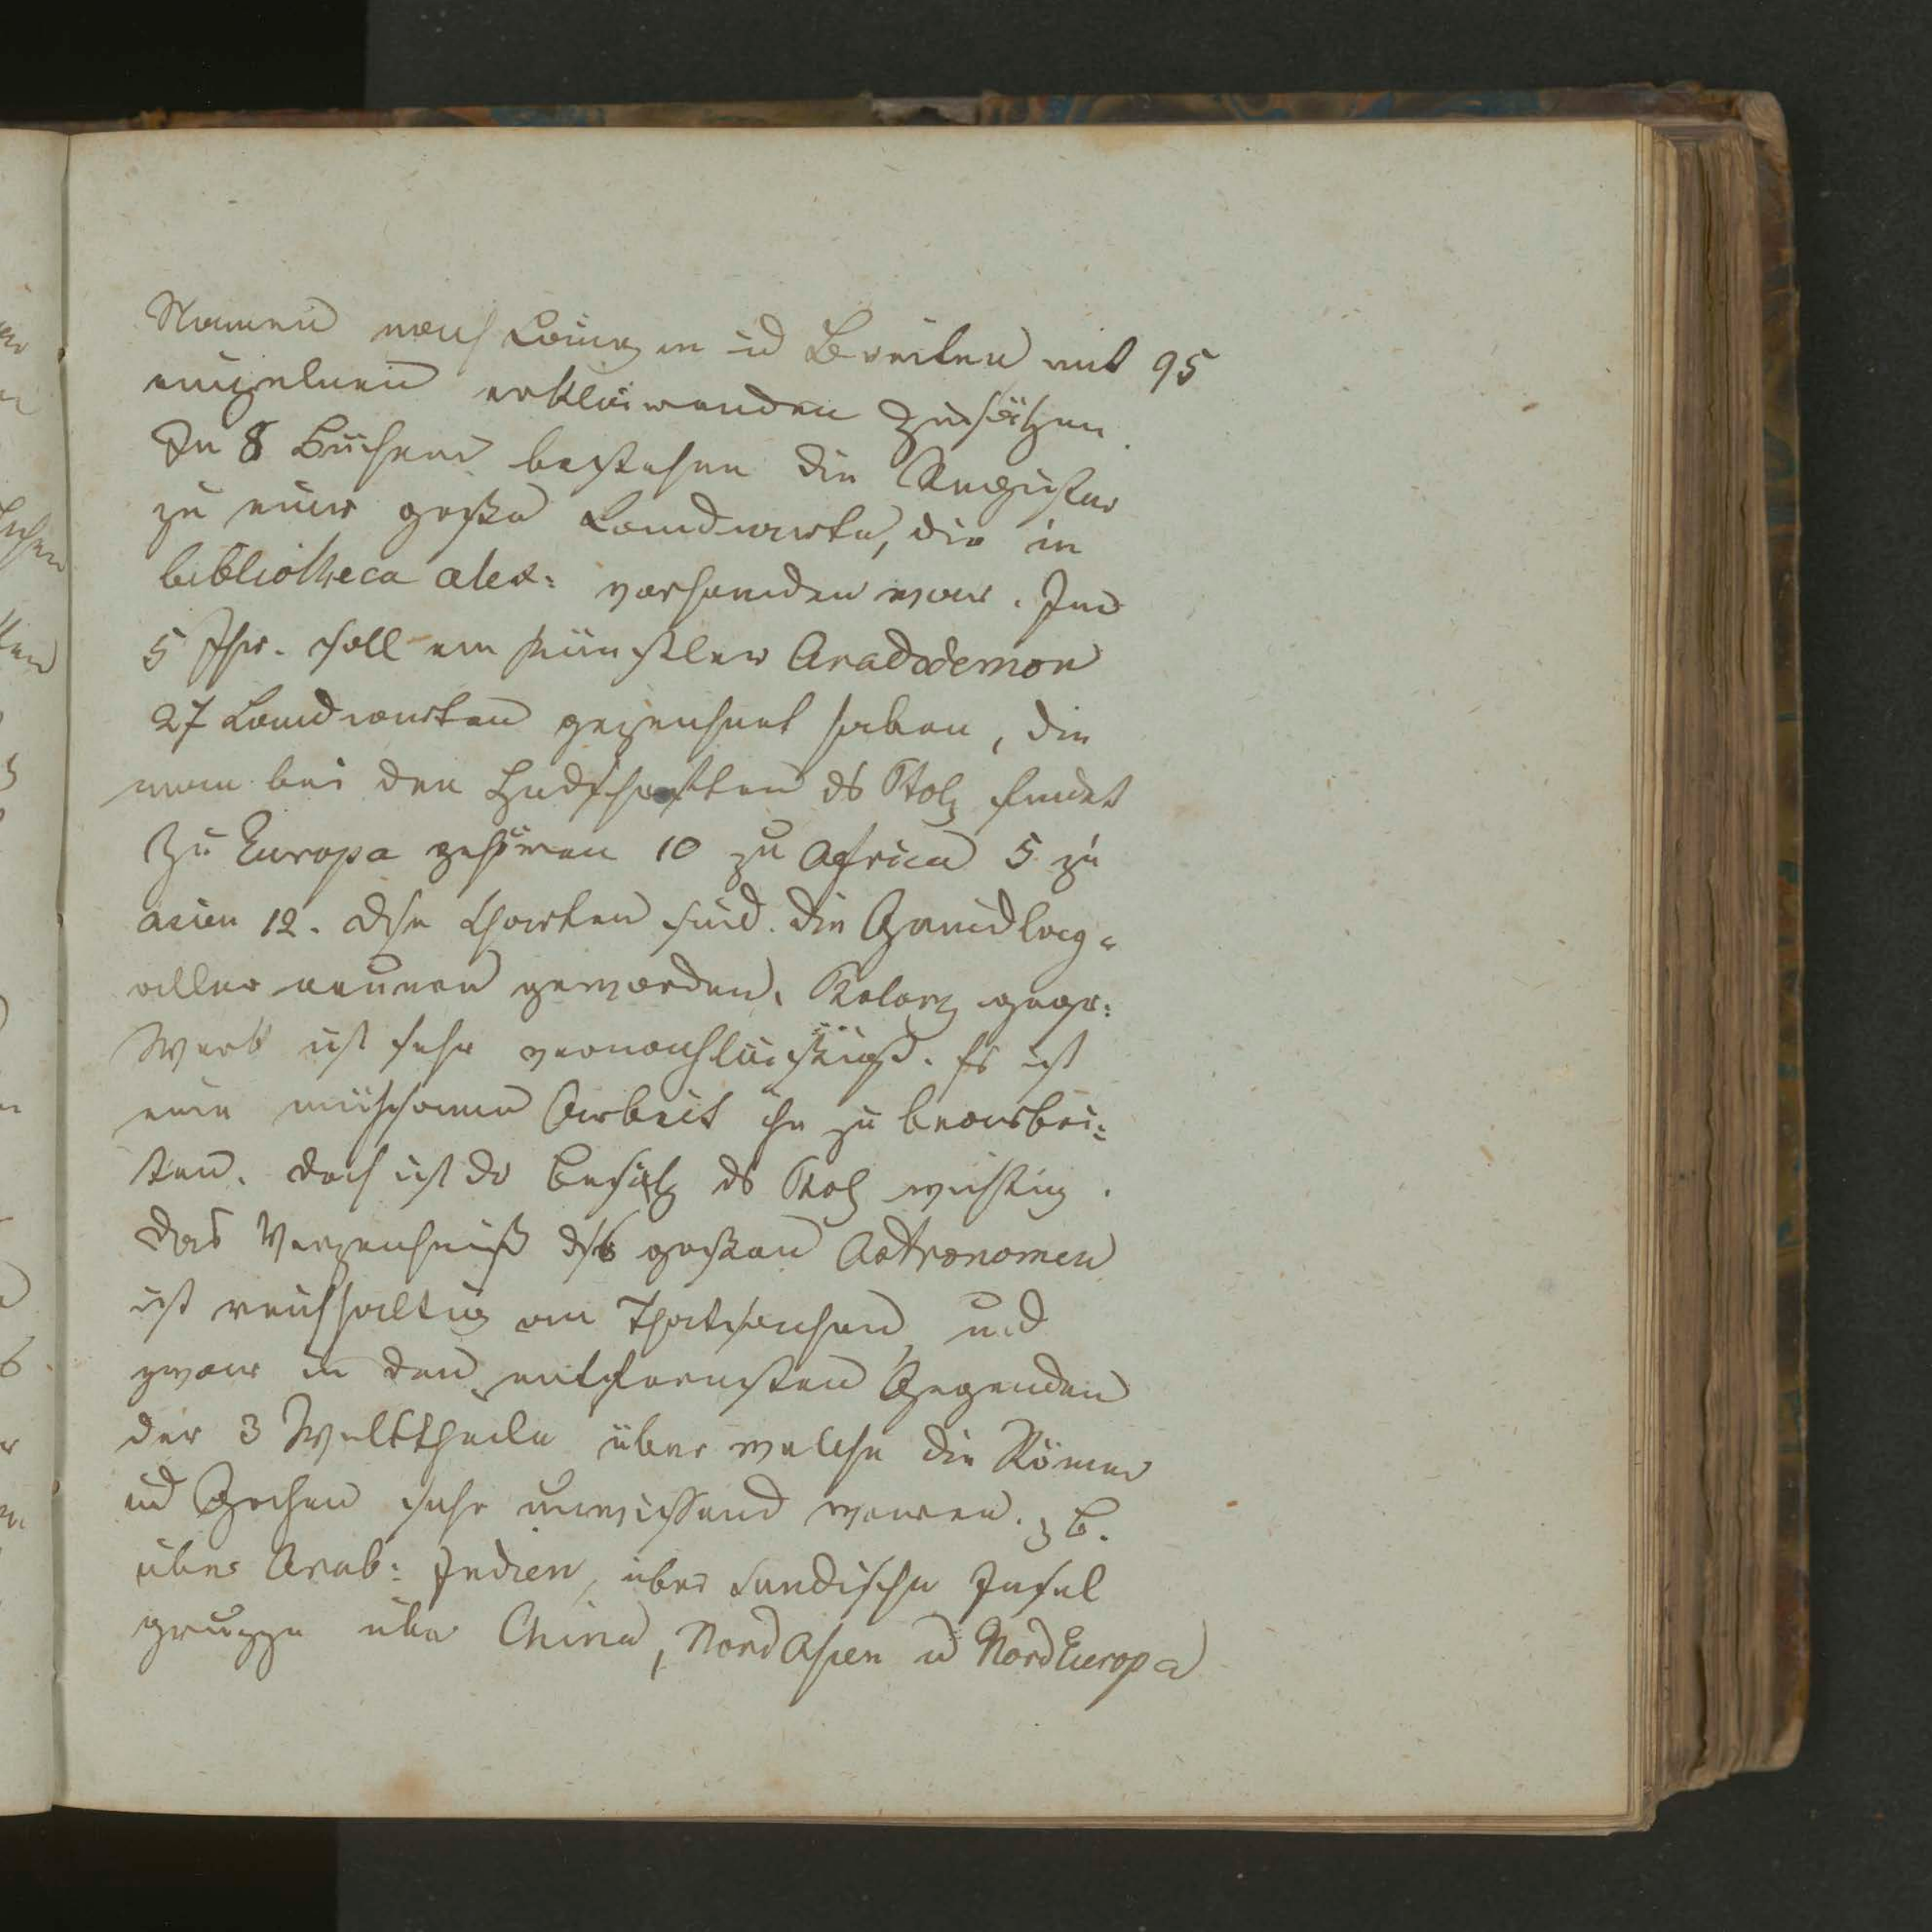 Namen nach Längen ud Breiten mit 95
einzelnen erklärenden Zusätzen.
In 8 Büchern bestehen die Register
zu einer großen Landcarte, die in
bibliotheca alex: vorhanden war. Im
5 Jhr. soll ein Künstler Aradodemon
27 Landcarten gezeichnet haben, die
man bei den Hndschriften ds Ptol findet
Zu Europa gehören 10 zu Africa 5 zu
asien 12. Dse Charten sind die Grundlage
aller neueren geworden. Ptolem geogr:
Werk ist sehr vernachlässigt. Es ist
eine mühsame Arbeit ihn zu bearbei=
ten. Doch ist dr Besitz ds Ptol wichtig.
Das Verzeichniß dss großen Astronomen
ist reichhaltig an Thatsachen, und
zwar in den entferntesten Gegenden
der 3 Welttheile über welche die Römer
ud Grchen sehr unwissend waren. z B.
über Arab: Indien, über sundische Insel
gruppe über China, Nord Asien ud Nord Europa